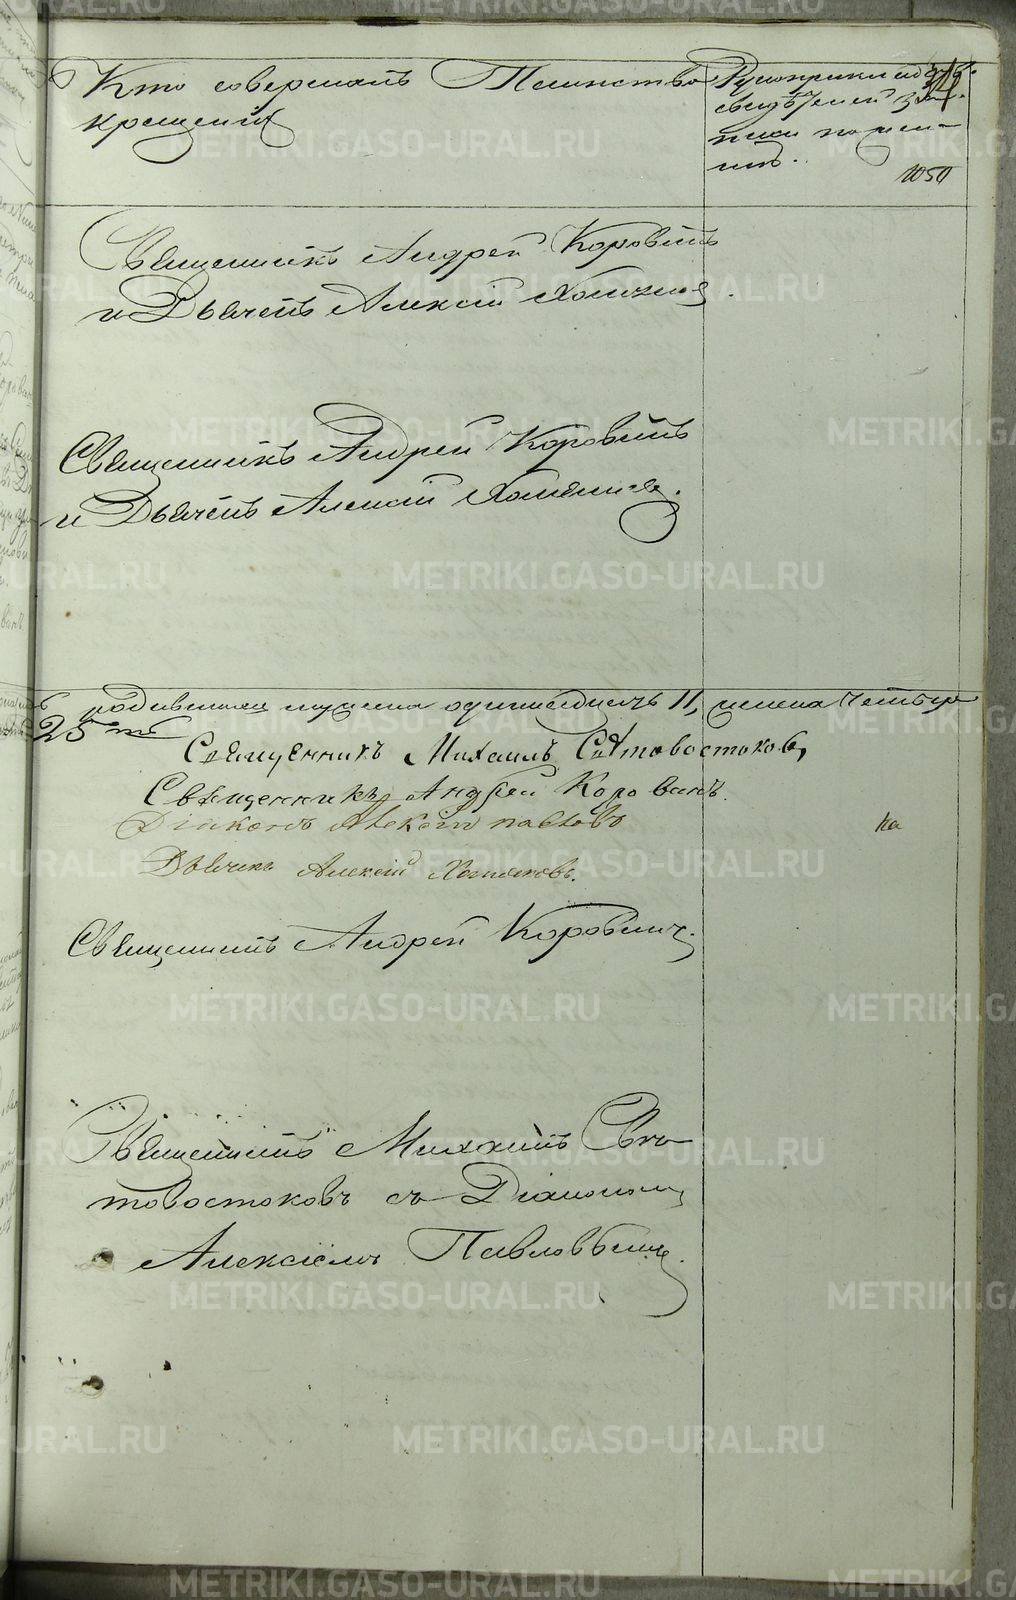 Кто совершалъ Таинство
крещенія
Рукоприкладство
свидѣтелей записи
по желанію.
1050
Священникъ Андрей Коровинъ
и Дьячекъ Алексій Хомяковъ.
Священникъ Андрей Коровинъ
и Дьячекъ Алексій Хомяковъ.
родившихся мужеска одиннадцать 11, женска четыре
25
Священникъ Михаилъ Святовостоковъ,
Священникъ Андрей Коровинъ.
Діаконъ Алексій Павловъ
Дьячекъ Алексій Хомяковъ.
Священникъ Андрей Коровинъ.
Священникъ Михаилъ Свя-
товостоковъ съ Діакономъ
Алексіемъ Павловымъ.
METRIKI.GASO-URAL.RU